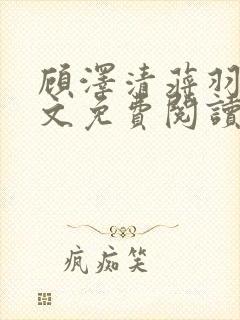 顧澤清蔣羽
文免費閱讀
瘋癡笑